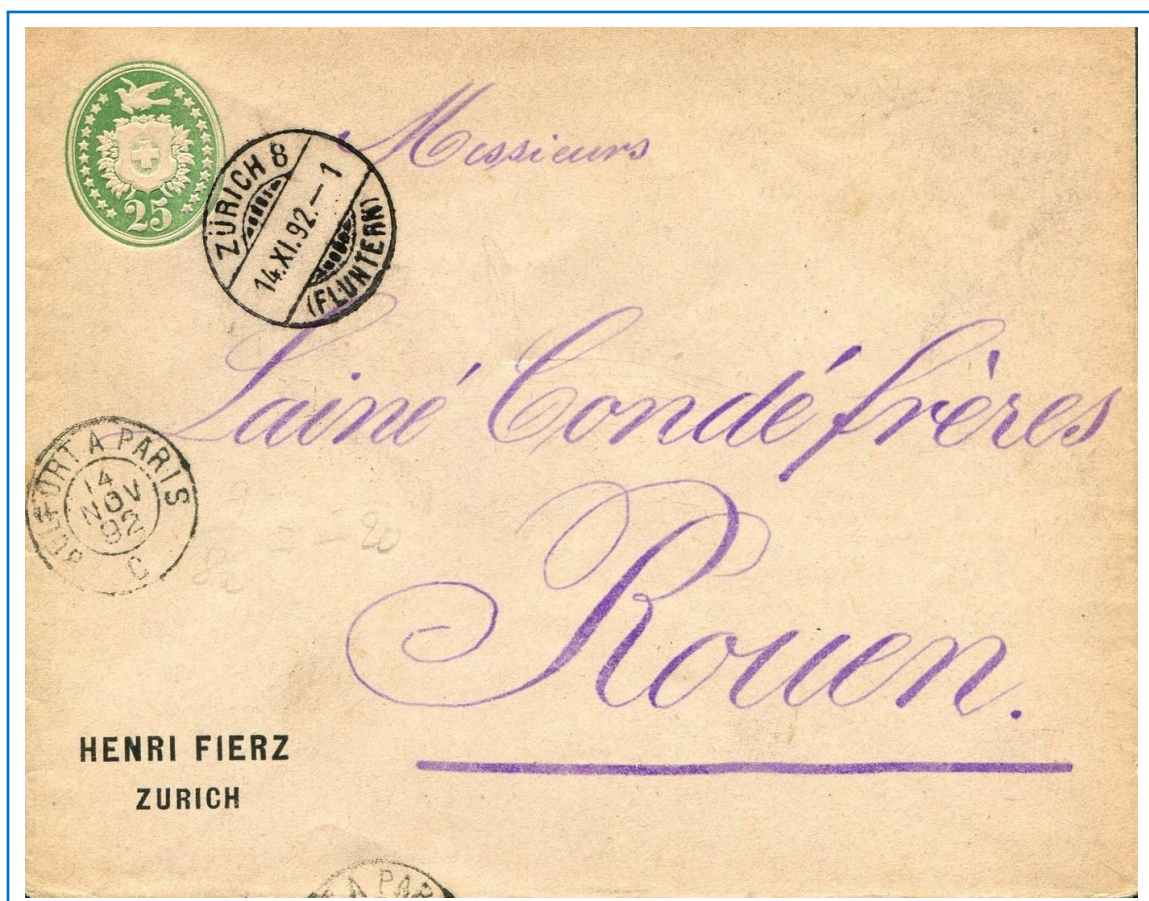 25
ZÜRICH 8
14.XI.92.–1
(FLUNTERN)
Messieurs
Lainé Condé frères
Rouen.
BELFORT A PARIS
14
NOV
92
C
= - 20
HENRI FIERZ
ZURICH
A PAR